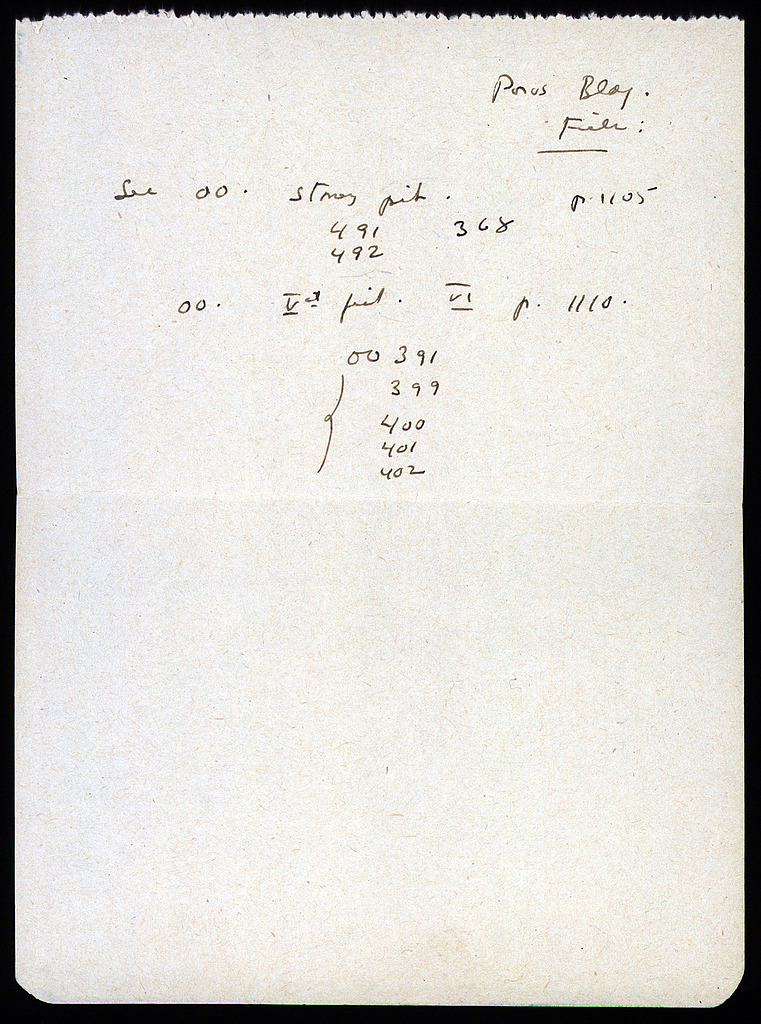 Poros Bldg.
Fill:
See OO. stroses pit. p. 1105
491 368
492
OO. V ct fill. VI p. 1110.
OO 391
399
400
401
402